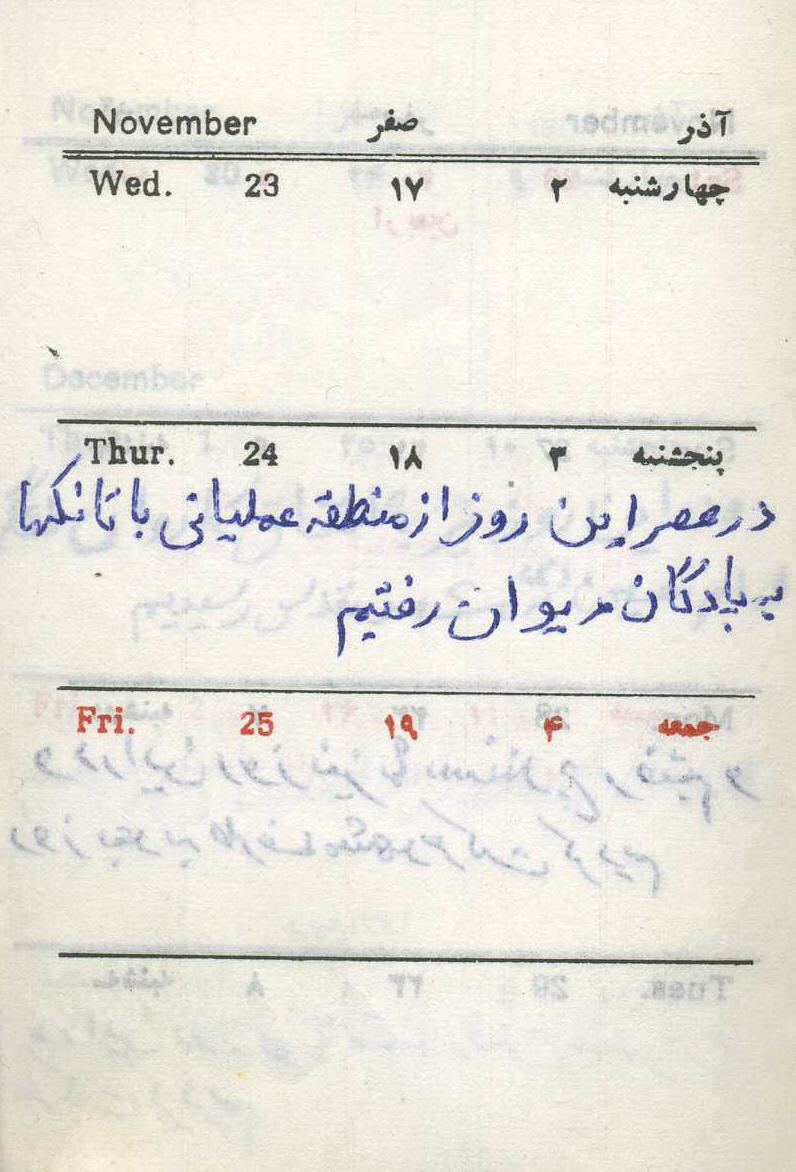 November صفر آذر
Wed. 23 ۱۷ ۲ چهارشنبه
Thur. 24 ۱۸ ۳ پنجشنبه
در عصر این روز از منطقه عملیاتی با تانکها
به پادگان مریوان رفتیم
Fri. 25 ۱۹ ۴ جمعه